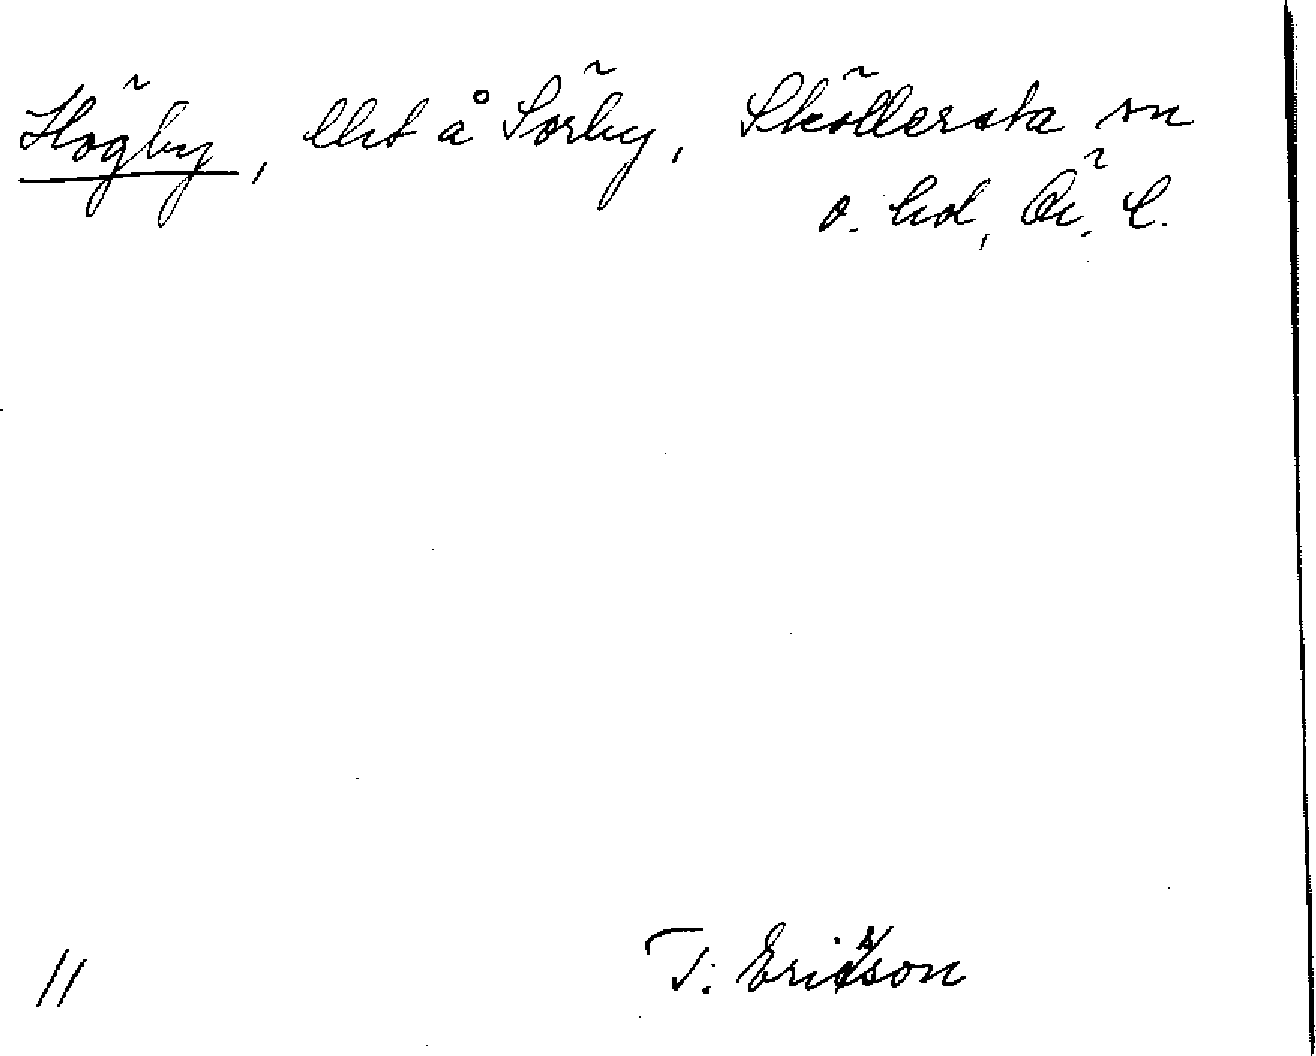 Högby, lht å Sörby, Sköllersta sn
o. hd, Ör. l.
T. Ericsson
//